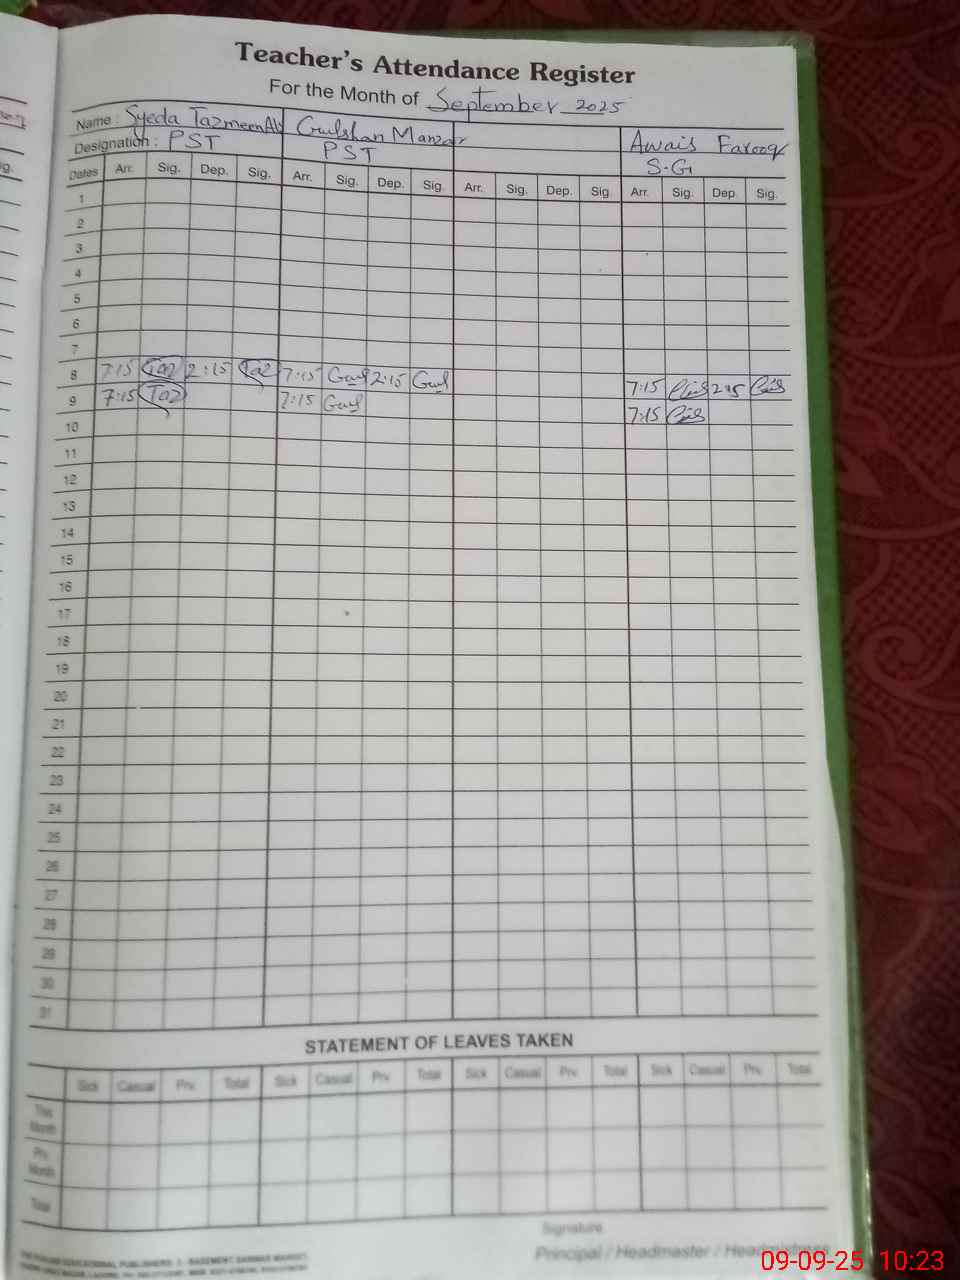 Teacher's Attendance Register
For the Month of September 2025
Name : Syeda Tazmeen Ali Gulshan Manzar Awais Farooq
Designation : PST PST S.G
Dates Arr. Sig. Dep. Sig. Arr. Sig. Dep. Sig. Arr. Sig. Dep. Sig. Arr. Sig. Dep. Sig.
1
2
3
4
5
6
7
8 7:15 Taz 2:15 Taz 7:15 Gul 2:15 Gul 7:15 2:15
9 7:15 Taz 7:15 Gul 7:15
10
11
12
13
14
15
16
17
18
19
20
21
22
23
24
25
26
27
28
29
30
31
STATEMENT OF LEAVES TAKEN
Sick Casual Prv. Total Sick Casual Prv. Total Sick Casual Prv. Total Sick Casual Prv. Total
This Month
Prv. Month
Total
Signature
Principal / Headmaster / Headmistress
09-09-25 10:23